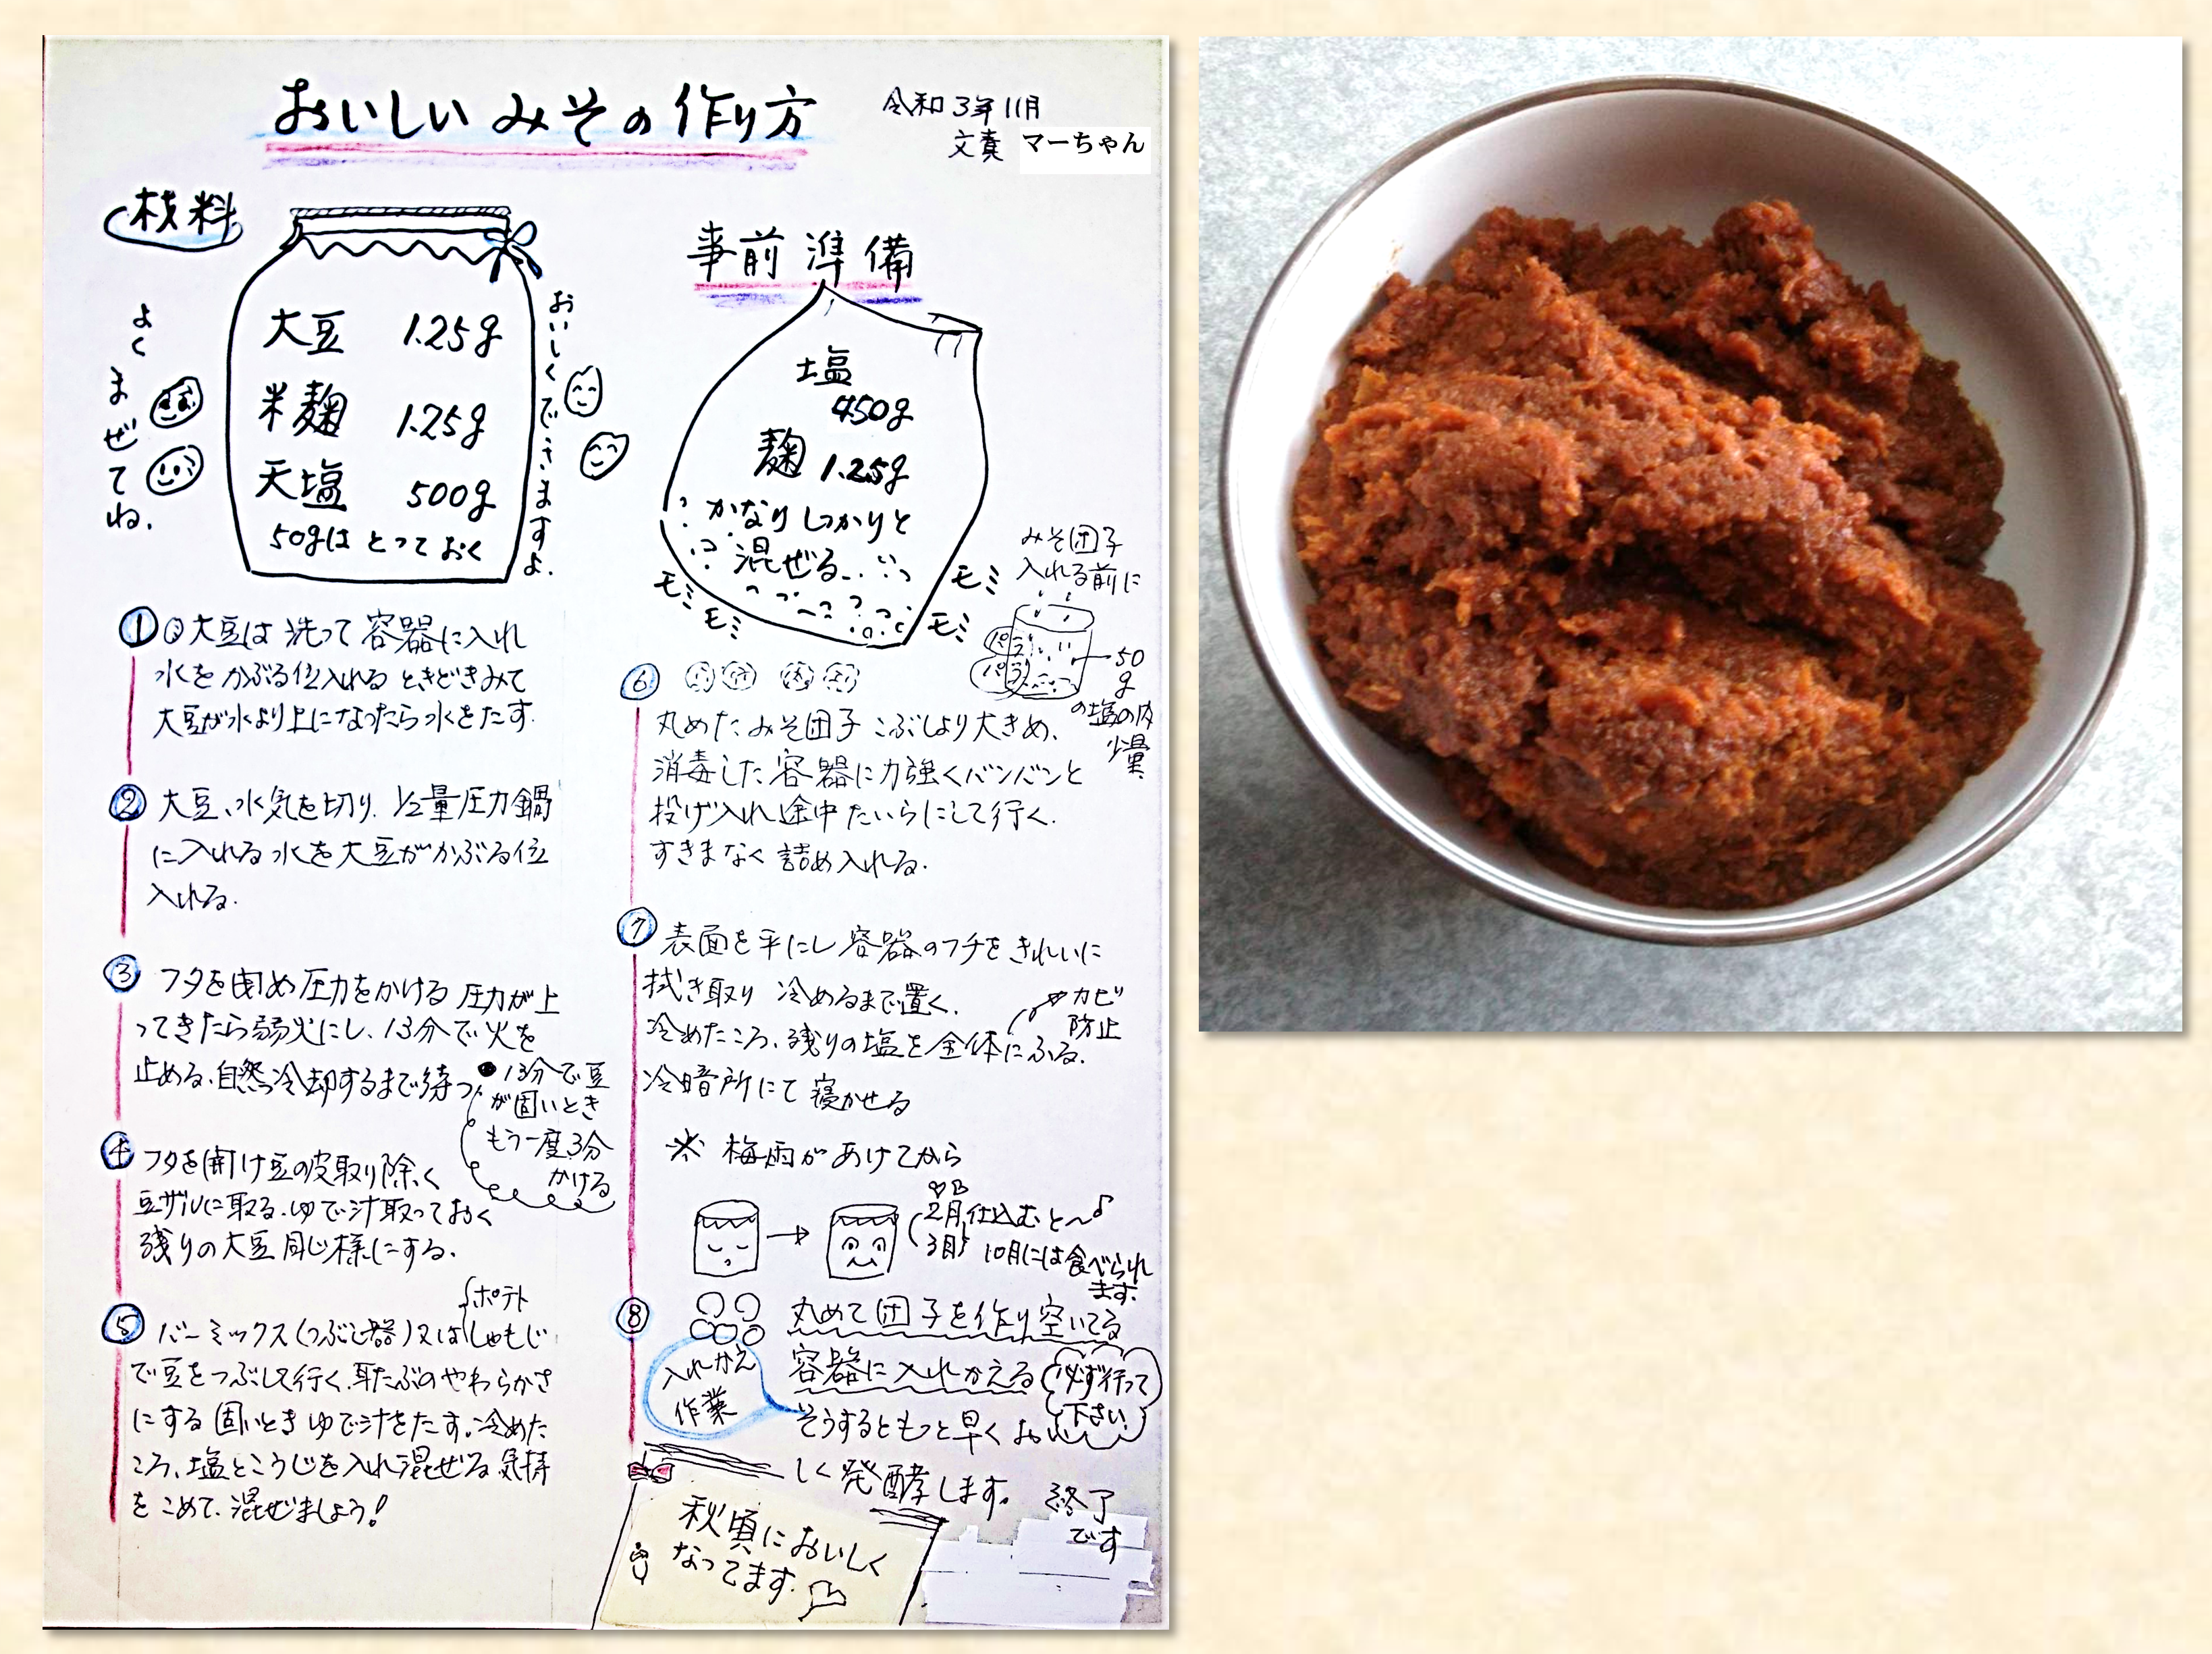 おいしいみその作り方
令和3年11月
文責 マーちゃん
材料
よくまぜてね.
大豆 1.25g
米麹 1.25g
天塩 500g
50gはとっておく
おいしくできますよ.
事前準備
塩
450g
麹 1.25g
かなりしっかりと
混ぜる..
モミ
モミ
モミ
モミ
みそ団子
入れる前に
パラ
パラ
50
g
の塩の内
少量
① 大豆は洗って容器に入れ
水をかぶる位入れる ときどきみて
大豆が水より上になったら水をたす.
② 大豆、水気を切り. 1/2量圧力鍋
に入れる 水を大豆がかぶる位
入れる.
③ フタを閉め圧力をかける 圧力が上
ってきたら弱火にし、13分で火を
止める、自然冷却するまで待つ.
●13分で豆
が固いとき
もう一度3分
かける
④ フタを開け豆の皮取り除く
豆ザルに取る.ゆで汁取っておく
残りの大豆同じ様にする.
⑤ バーミックス(つぶし器)又はしゃもじ
ポテト
で豆をつぶして行く.耳たぶのやわらかさ
にする 固いときゆで汁をたす.冷めた
ころ、塩とこうじを入れ混ぜる 気持
をこめて、混ぜましょう!
⑥
丸めたみそ団子こぶしより大きめ、
消毒した容器に力強くバンバンと
投げ入れ途中たいらにして行く.
すきまなく詰め入れる.
⑦ 表面を平にし容器のフチをきれいに
拭き取り 冷めるまで置く.
冷めたころ、残りの塩を全体にふる.
カビ
防止
冷暗所にて寝かせる
※ 梅雨があけてから
2月
3月
仕込むと〜♪
10月には食べられ
ます.
⑧ 丸めて団子を作り空いてる
容器に入れかえる
必ず行って
下さい
入れかえ
作業
そうするともっと早くおい
しく発酵します。
終了
です
秋頃においしく
なってます.